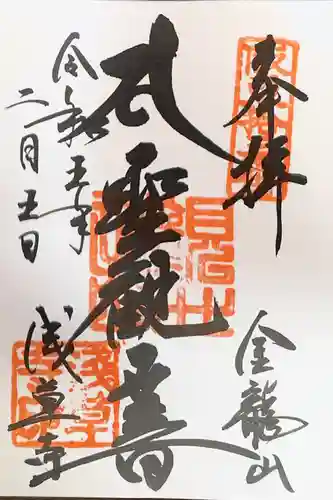 奉拝
金龍山
聖観音
浅草寺
令和五年
二月五日